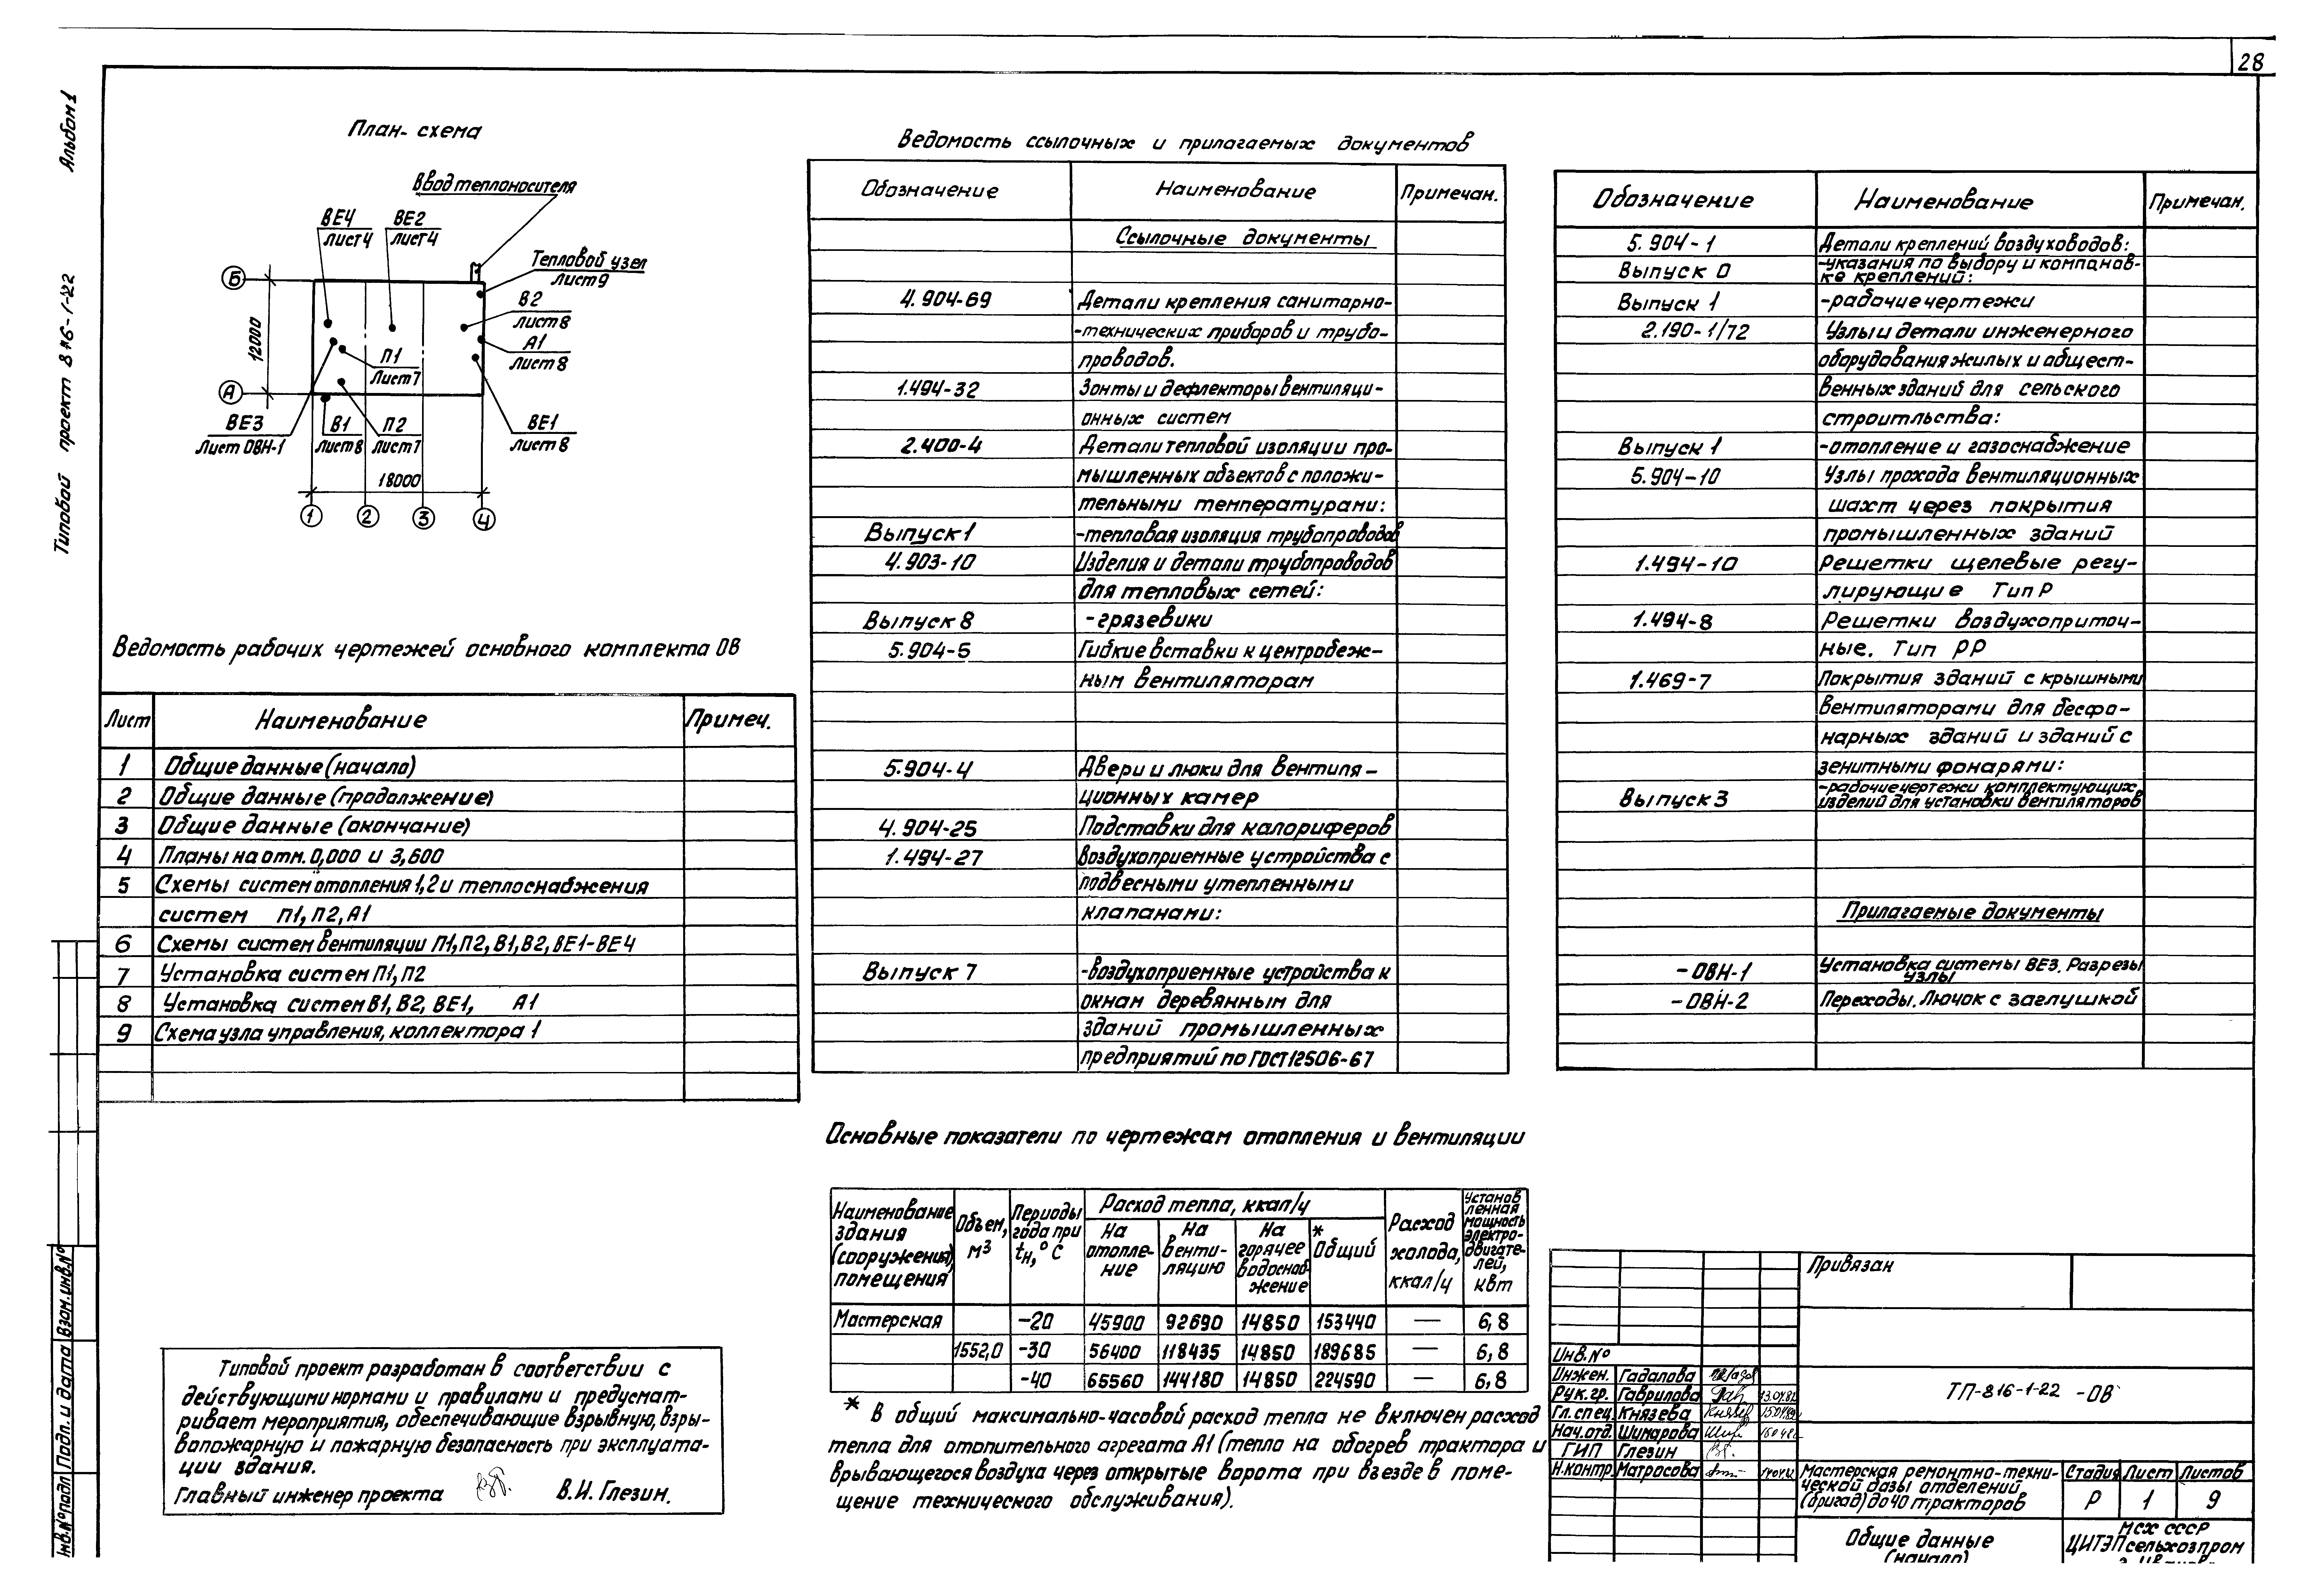 28
Альбом 1
Типовой проект 816-1-22
План-схема
Ввод теплоносителя
ВЕ4
Лист 4
ВЕ2
Лист 4
Тепловой узел
Лист 9
В2
Лист 8
А1
Лист 8
Б
12000
А
П1
Лист 7
ВЕ3
Лист ОВН-1
В1
Лист 8
П2
Лист 7
ВЕ1
Лист 8
18000
1 2 3 4
Ведомость рабочих чертежей основного комплекта ОВ
Лист Наименование Примеч.
1 Общие данные (начало)
2 Общие данные (продолжение)
3 Общие данные (окончание)
4 Планы на отм. 0,000 и 3,600
5 Схемы систем отопления 1,2 и теплоснабжения
систем П1, П2, А1
6 Схемы систем вентиляции П1, П2, В1, В2, ВЕ1-ВЕ4
7 Установка систем П1, П2
8 Установка систем В1, В2, ВЕ1, А1
9 Схема узла управления, коллектора 1
Ведомость ссылочных и прилагаемых документов
Обозначение Наименование Примечан.
Ссылочные документы
4.904-69 Детали крепления санитарно-
-технических приборов и трубо-
проводов.
1.494-32 Зонты и дефлекторы вентиляци-
онных систем
2.400-4 Детали тепловой изоляции про-
мышленных объектов с положи-
тельными температурами:
Выпуск 1 -тепловая изоляция трубопроводов
4.903-10 Изделия и детали трубопроводов
для тепловых сетей:
Выпуск 8 -грязевики
5.904-5 Гибкие вставки к центробеж-
ным вентиляторам
5.904-4 Двери и люки для вентиля-
ционных камер
4.904-25 Подставки для калориферов
1.494-27 Воздухоприемные устройства с
подвесными утепленными
клапанами:
Выпуск 7 -воздухоприемные устройства к
окнам деревянным для
зданий промышленных
предприятий по ГОСТ 12506-67
Обозначение Наименование Примечан.
5.904-1 Детали креплений воздуховодов:
Выпуск 0 -указания по выбору и компанов-
ке креплений:
Выпуск 1 -рабочие чертежи
2.190-1/72 Узлы и детали инженерного
оборудования жилых и общест-
венных зданий для сельского
строительства:
Выпуск 1 -отопление и газоснабжение
5.904-10 Узлы прохода вентиляционных
шахт через покрытия
промышленных зданий
1.494-10 Решетки щелевые регу-
лирующие Тип Р
1.494-8 Решетки воздухоприточ-
ные. Тип РР
1.469-7 Покрытия зданий с крышными
вентиляторами для бесфо-
нарных зданий и зданий с
зенитными фонарями:
Выпуск 3 -рабочие чертежи комплектующих
изделий для установки вентиляторов
Прилагаемые документы
-ОВН-1 Установка системы ВЕ3. Разрезы
Узлы
-ОВН-2 Переходы. Лючок с заглушкой
Основные показатели по чертежам отопления и вентиляции
Наименование здания (сооружения), помещения
Объем, м3
Периоды года при tн, °С
Расход тепла, ккал/ч
На отопле-ние
На венти-ляцию
На горячее водоснаб-жение
* Общий
Расход холода, ккал/ч
Установ ленная мощность электро-двигате-лей, квт
Мастерская -20 45900 92690 14850 153440 — 6,8
1552,0 -30 56400 118435 14850 189685 — 6,8
-40 65560 144180 14850 224590 — 6,8
* В общий максимально-часовой расход тепла не включен расход
тепла для отопительного агрегата А1 (тепло на обогрев трактора и
врывающегося воздуха через открытые ворота при въезде в поме-
щение технического обслуживания).
Типовой проект разработан в соответствии с
действующими нормами и правилами и предусмат-
ривает мероприятия, обеспечивающие взрывную, взры-
вопожарную и пожарную безопасность при эксплуата-
ции здания.
Главный инженер проекта В.И. Глезин.
Взам. инв. №
Подп. и дата
Инв. № подл
Привязан
Инв. №
Инжен. Гадалова
Рук. гр. Гаврилова 13.04.82
Гл. спец. Князева
Нач. отд. Шимарова
ГИП Глезин
Н. контр. Матросова
ТП-816-1-22 -ОВ
Мастерская ремонтно-техни-
ческой базы отделений
(бригад) до 40 тракторов
Стадия Лист Листов
Р 1 9
Общие данные
(начало)
МСХ СССР
ЦИТЭПсельхозпром